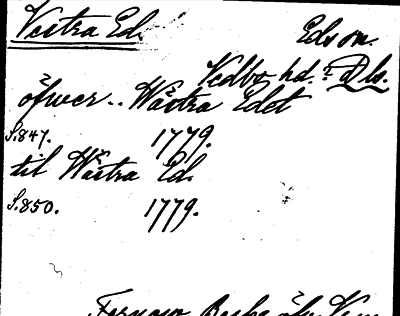 Vestra Ed. Edsom.
Vedbo hd. Dls.
öfwer.. Wästra Edet
S.847. 1779.
til Wästra Ed.
S.850. 1779.
Fernow Beskr. öfv. Verm